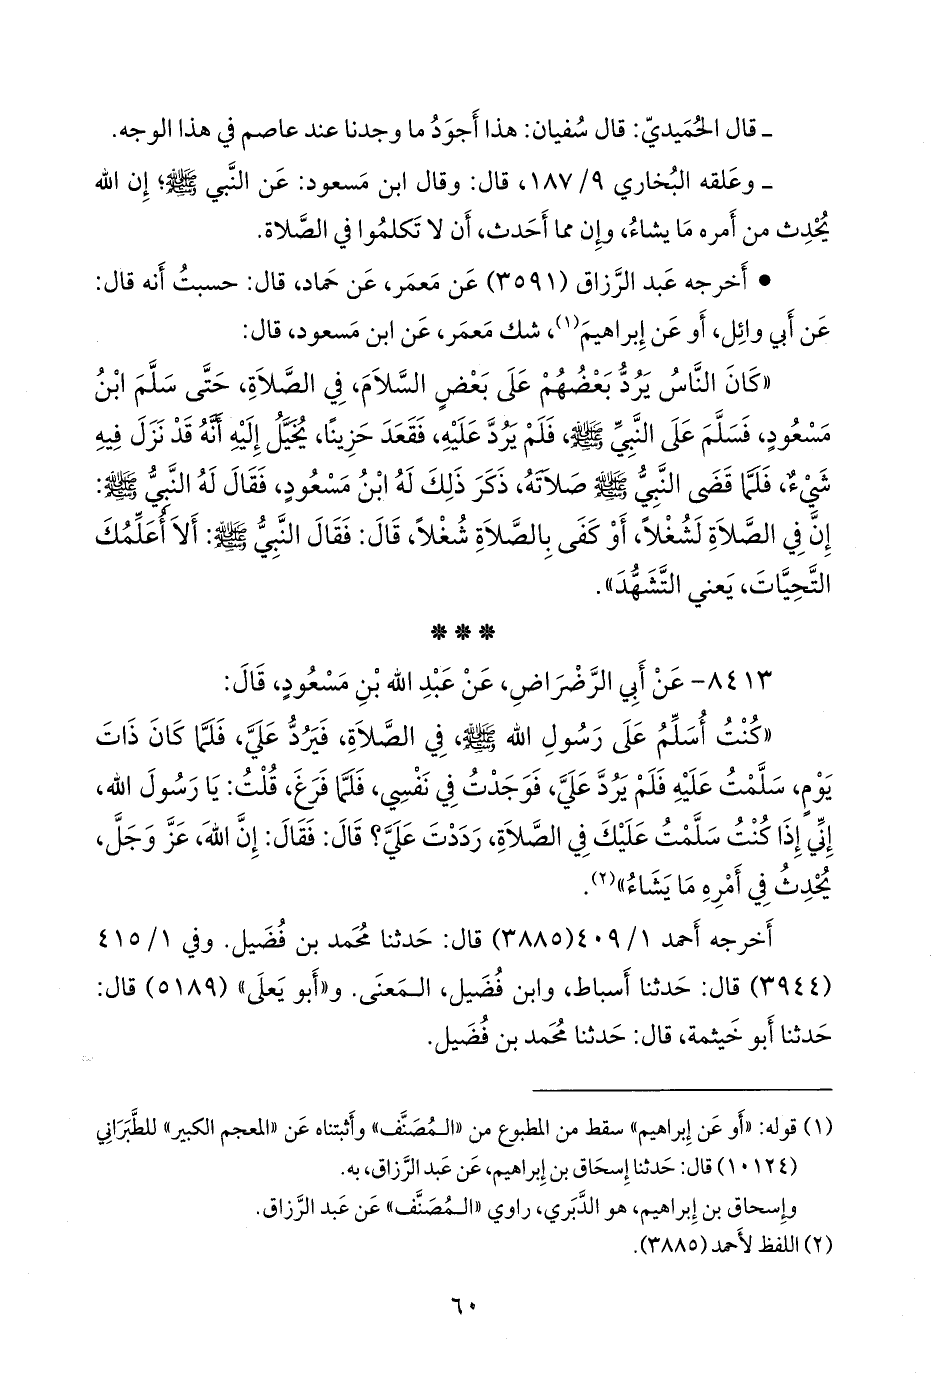 ـ قال الحُمَيديّ: قال سُفيان: هذا أَجوَدُ ما وجدنا عند عاصم في هذا الوجه.
ـ وعَلقه البُخاري ٩/ ١٨٧، قال: وقال ابن مَسعود: عَن النَّبي ﷺ؛ إن الله
يُحْدِث من أَمره مَا يشاءُ، وإن مما أَحدث، أَن لا تَكلمُوا في الصَّلاة.
• أَخرجه عَبد الرَّزاق (٣٥٩١) عَن مَعمَر، عَن حَماد، قال: حسبتُ أَنه قال:
عَن أَبي وائِل، أَو عَن إِبراهيمَ(١)، شك مَعمَر، عَن ابن مَسعود، قال:
«كَانَ النَّاسُ يَرُدُّ بَعْضُهُمْ عَلَى بَعْضٍ السَّلاَمَ، فِي الصَّلاَةِ، حَتَّى سَلَّمَ ابْنُ
مَسْعُودٍ، فَسَلَّمَ عَلَى النَّبِيِّ ﷺ، فَلَمْ يَرُدَّ عَلَيْهِ، فَقَعَدَ حَزِينًا، يُخَيَّلُ إِلَيْهِ أَنَّهُ قَدْ نَزَلَ فِيهِ
شَيْءٌ، فَلَمَّا قَضَى النَّبِيُّ ﷺ صَلاَتَهُ، ذَكَرَ ذَلِكَ لَهُ ابْنُ مَسْعُودٍ، فَقَالَ لَهُ النَّبِيُّ ﷺ:
إِنَّ فِي الصَّلاَةِ لَشُغْلاً، أَوْ كَفَى بِالصَّلاَةِ شُغْلاً، قَالَ: فَقَالَ النَّبِيُّ ﷺ: أَلاَ أُعَلِّمُكَ
التَّحِيَّاتَ، يَعني التَّشَهُّدَ».
* * *
٨٤١٣- عَنْ أَبِي الرَّضْرَاضِ، عَنْ عَبْدِ الله بْنِ مَسْعُودٍ، قَالَ:
«كُنْتُ أُسَلِّمُ عَلَى رَسُولِ الله ﷺ، فِي الصَّلاَةِ، فَيَرُدُّ عَلَيَّ، فَلَمَّا كَانَ ذَاتَ
يَوْمٍ، سَلَّمْتُ عَلَيْهِ فَلَمْ يَرُدَّ عَلَيَّ، فَوَجَدْتُ فِي نَفْسِي، فَلَمَّا فَرَغَ، قُلْتُ: يَا رَسُولَ الله،
إِنِّي إِذَا كُنْتُ سَلَّمْتُ عَلَيْكَ فِي الصَّلاَةِ، رَدَدْتَ عَلَيَّ؟ قَالَ: فَقَالَ: إِنَّ اللهَ، عَزَّ وَجَلَّ،
يُحْدِثُ فِي أَمْرِهِ مَا يَشَاءُ»(٢).
أَخرجه أَحمد ١/ ٤٠٩(٣٨٨٥) قال: حَدثنا مُحَمد بن فُضَيل. وفي ١/ ٤١٥
(٣٩٤٤) قال: حَدثنا أَسباط، وابن فُضَيل، الـمَعنَى. و«أَبو يَعلَى» (٥١٨٩) قال:
حَدثنا أَبو خَيثمة، قال: حَدثنا مُحَمد بن فُضَيل.
(١) قوله: «أَو عَن إِبراهيم» سقط من المطبوع من «الـمُصَنَّف» وأَثبتناه عَن «المعجم الكبير» للطَّبَرَاني
(١٠١٢٤) قال: حَدثنا إِسحَاق بن إِبراهيم، عَن عَبد الرَّزاق، به.
وإِسحاق بن إِبراهيم، هو الدَّبَري، راوي «الـمُصَنَّف» عَن عَبد الرَّزاق.
(٢) اللفظ لأَحمد (٣٨٨٥).
٦٠